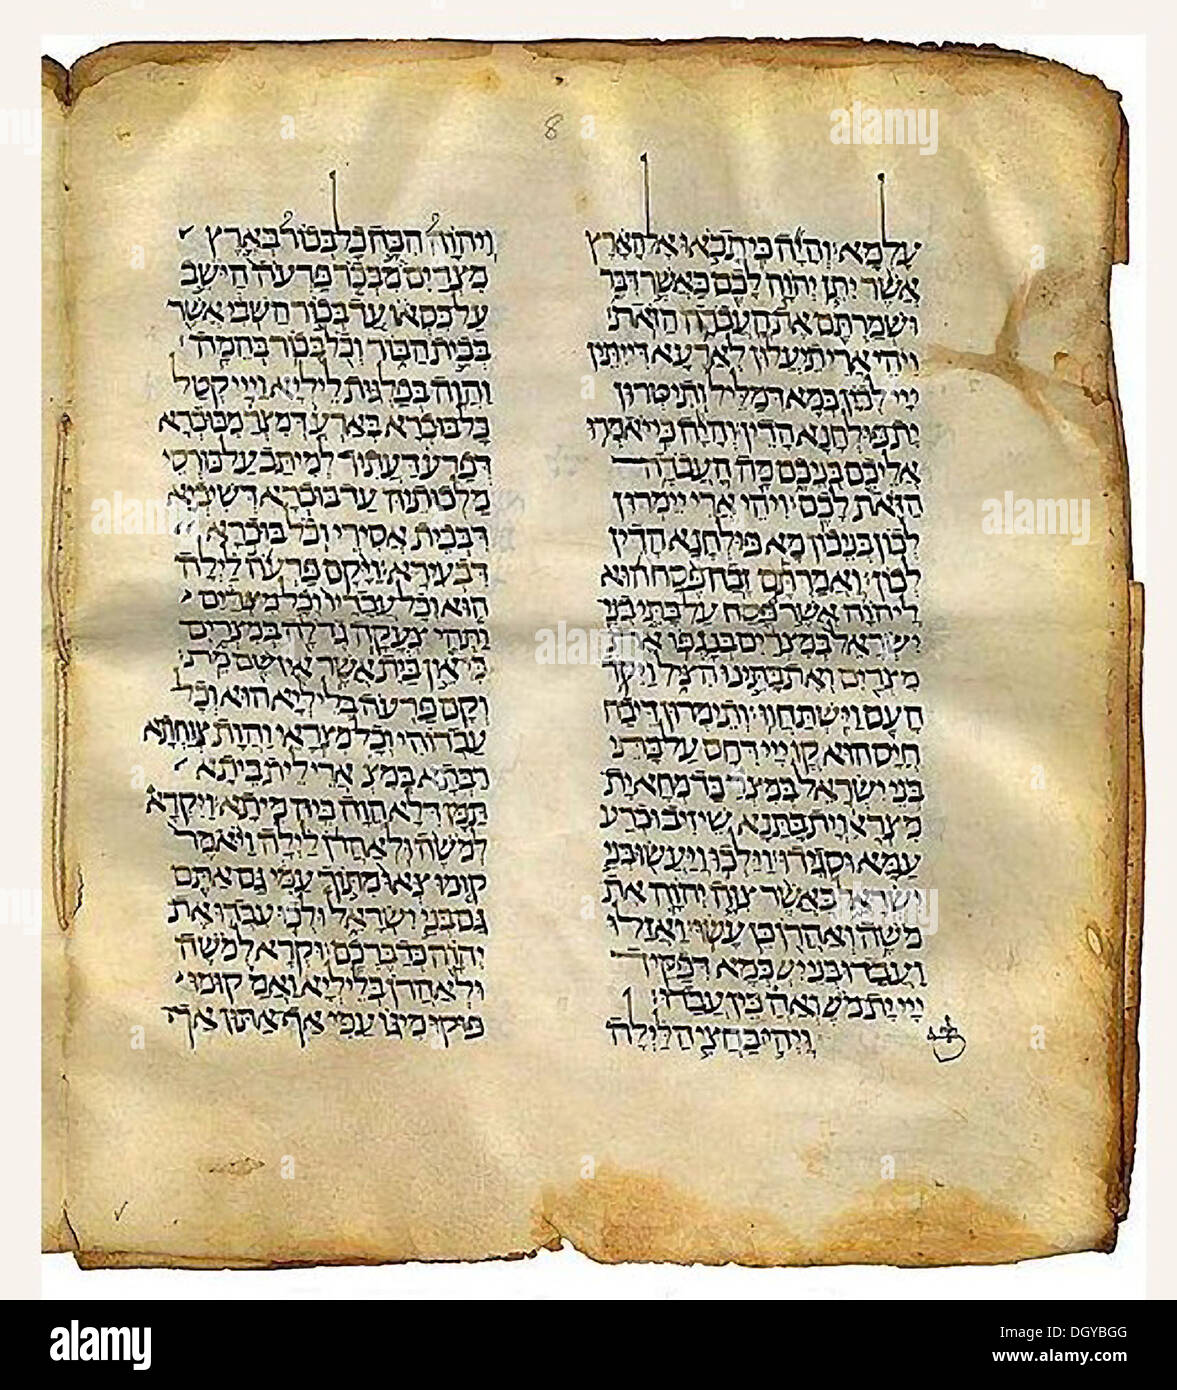 8
עלמא והיה כי תבאו אל הארץ
אשר יתן יהוה לכם כאשר דבר
ושמרתם את העבדה הזאת
ויהי ארי תעלון לארעא דייתין
ייי לכון כמא דמליל ותיטרון
ית פולחנא הדין והיה כי יאמרו
אליכם בניכם מה העבדה
הזאת לכם ויהי ארי יימרון
לכון בניכון מא פולחנא הדין
לכון ואמרתם זבח פסח הוא
ליהוה אשר פסח על בתי בני
ישראל במצרים בנגפו את
מצרים ואת בתינו הציל ויקד
העם וישתחוו ותימרון דיבח
חייס הוא קדן ייי דחס על בתי
בני ישראל במצרים כד מחא ית
מצראי וית בתנא שיזיב וכרע
עמא וסגידו וילכו ויעשו בני
ישראל כאשר צוה יהוה את
משה ואהרן כן עשו ואזלו
ועבדו בני יש כמא דפקיד
ייי ית משה ואה כין עבדו
ויהי בחצי הלילה
ויהוה הכה כל בכור בארץ
מצרים מבכר פרעה הישב
על כסאו עד בכור השבי אשר
בבית הבור וכל בכור בהמה
והוה בפלגות ליליא וייי קטל
כל בוכרא בארע דמצר מבוכרא
דפרע דעתיד למיתב על כורסי
מלכותיה עד בוכרא דשיביא
דבבית אסירי וכל בוכרא
דבעירא ויקם פרעה לילה
הוא וכל עבדיו וכל מצרים
ותהי צעקה גדלה במצרים
כי אין בית אשר אין שם מת
וקם פרעה בליליא הוא וכל
עבדוהי וכל מצראי והות צוחתא
רבתא במצ ארי לית ביתא
תמן דלא הוה ביה מיתא ויקרא
למשה ולאהרן לילה ויאמר
קומו צאו מתוך עמי גם אתם
גם בני ישראל ולכו עבדו את
יהוה כדברכם וקרא למשה
ולאהרן בליליא ואמ קומו
פוקו מיגו עמי אף אתון אף
alamy
Image ID: DGYBGG
www.alamy.com